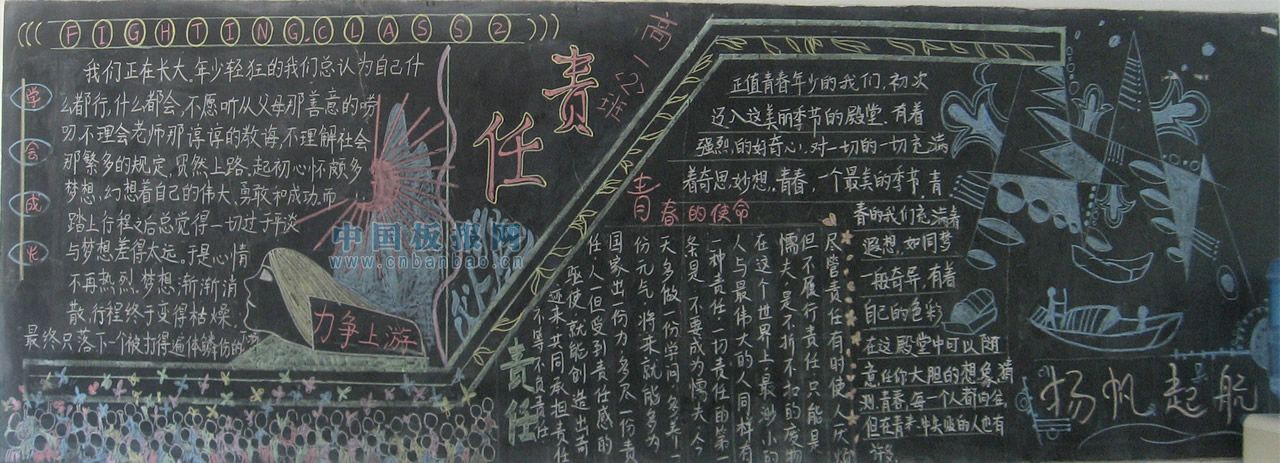 FIGHTING.CLASS2
学会成长
我们正在长大.年少轻狂的我们总认为自己什
么都行,什么都会,不愿听从父母那善意的唠
叨.不理会老师那谆谆的教诲.不理解社会
那繁多的规定.贸然上路.起初心怀颇多
梦想,幻想着自己的伟大.勇敢和成功.而
踏上行程之后总觉得一切过于平淡
与梦想差得太远.于是心情
不再热烈.梦想渐渐消
散.行程终于变得枯燥.
最终只落下个被打得遍体鳞伤的
力争上游
中国板报网
www.cnbanbao.cn
责任
高一(2)班
正值青春年少的我们.初次
迈入这美丽季节的殿堂.有着
强烈的好奇心.对一切的一切充满
着奇思妙想,青春,一个最美的季节.青
春的我们充满着
遐想.如同梦
一般奇异,有着
自己的色彩
在这殿堂中可以随
意任你大胆的想象猜
测.青春,每一个人都向会
但在青春中失败的人也有
青春的使命
尽管责任有时使人厌烦
但不履行责任只能是
懦夫,是不折不扣的废物
在这个世界上,最渺小的
人与最伟大的人同样有
一种责任.一切责任的第一
条是:不要成为懦夫.今
天多做一份学问,多养一
份元气.将来就能多为
国家出一份力.多尽一份责
任.人一但受到责任感的
驱使,就能创造出奇
迹来.共同承担责任
不等于不负责任
责任
扬帆起航